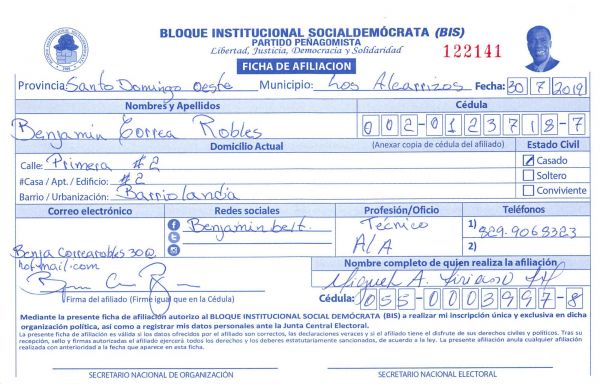 BLOQUE INSTITUCIONAL SOCIALDEMÓCRATA (BIS)
PARTIDO PEÑAGOMISTA
Libertad, Justicia, Democracia y Solidaridad
122141
FICHA DE AFILIACION
Provincia: Santo Domingo Oeste Municipio: Los Alcarrizos Fecha: 30 7 2019
Nombres y Apellidos Cédula
Benjamin Correa Robles 002-0123718-7
Domicilio Actual (Anexar copia de cédula del afiliado) Estado Civil
Calle: Primera #2 Casado
#Casa / Apt. / Edificio: #2 Soltero
Barrio / Urbanización: Barriolandia Conviviente
Correo electrónico Redes sociales Profesión/Oficio Teléfonos
Benjaminbelt. Técnico A/A 1) 829-9068323
2)
Benja Correarobles 30@
hotmail.com
Nombre completo de quien realiza la afiliación
Miguel A.
Firma del afiliado (Firme igual que en la Cédula) Cédula: 055-0003997-8
Mediante la presente ficha de afiliación autorizo al BLOQUE INSTITUCIONAL SOCIAL DEMÓCRATA (BIS) a realizar mi inscripción única y exclusiva en dicha
organización política, así como a registrar mis datos personales ante la Junta Central Electoral.
La presente ficha de afiliación es válida si los datos ofrecidos por el afiliado son correctos, las declaraciones veraces y si el afiliado tiene el disfrute de sus derechos civiles y políticos. Tras su
recepción, sello y firmas autorizadas el afiliado ejercerá todos los derechos y los deberes estatutariamente sancionados, de acuerdo a la ley. La presente afiliación anula cualquier afiliación
realizada con anterioridad a la fecha que aparece en esta ficha.
SECRETARIO NACIONAL DE ORGANIZACIÓN SECRETARIO NACIONAL ELECTORAL